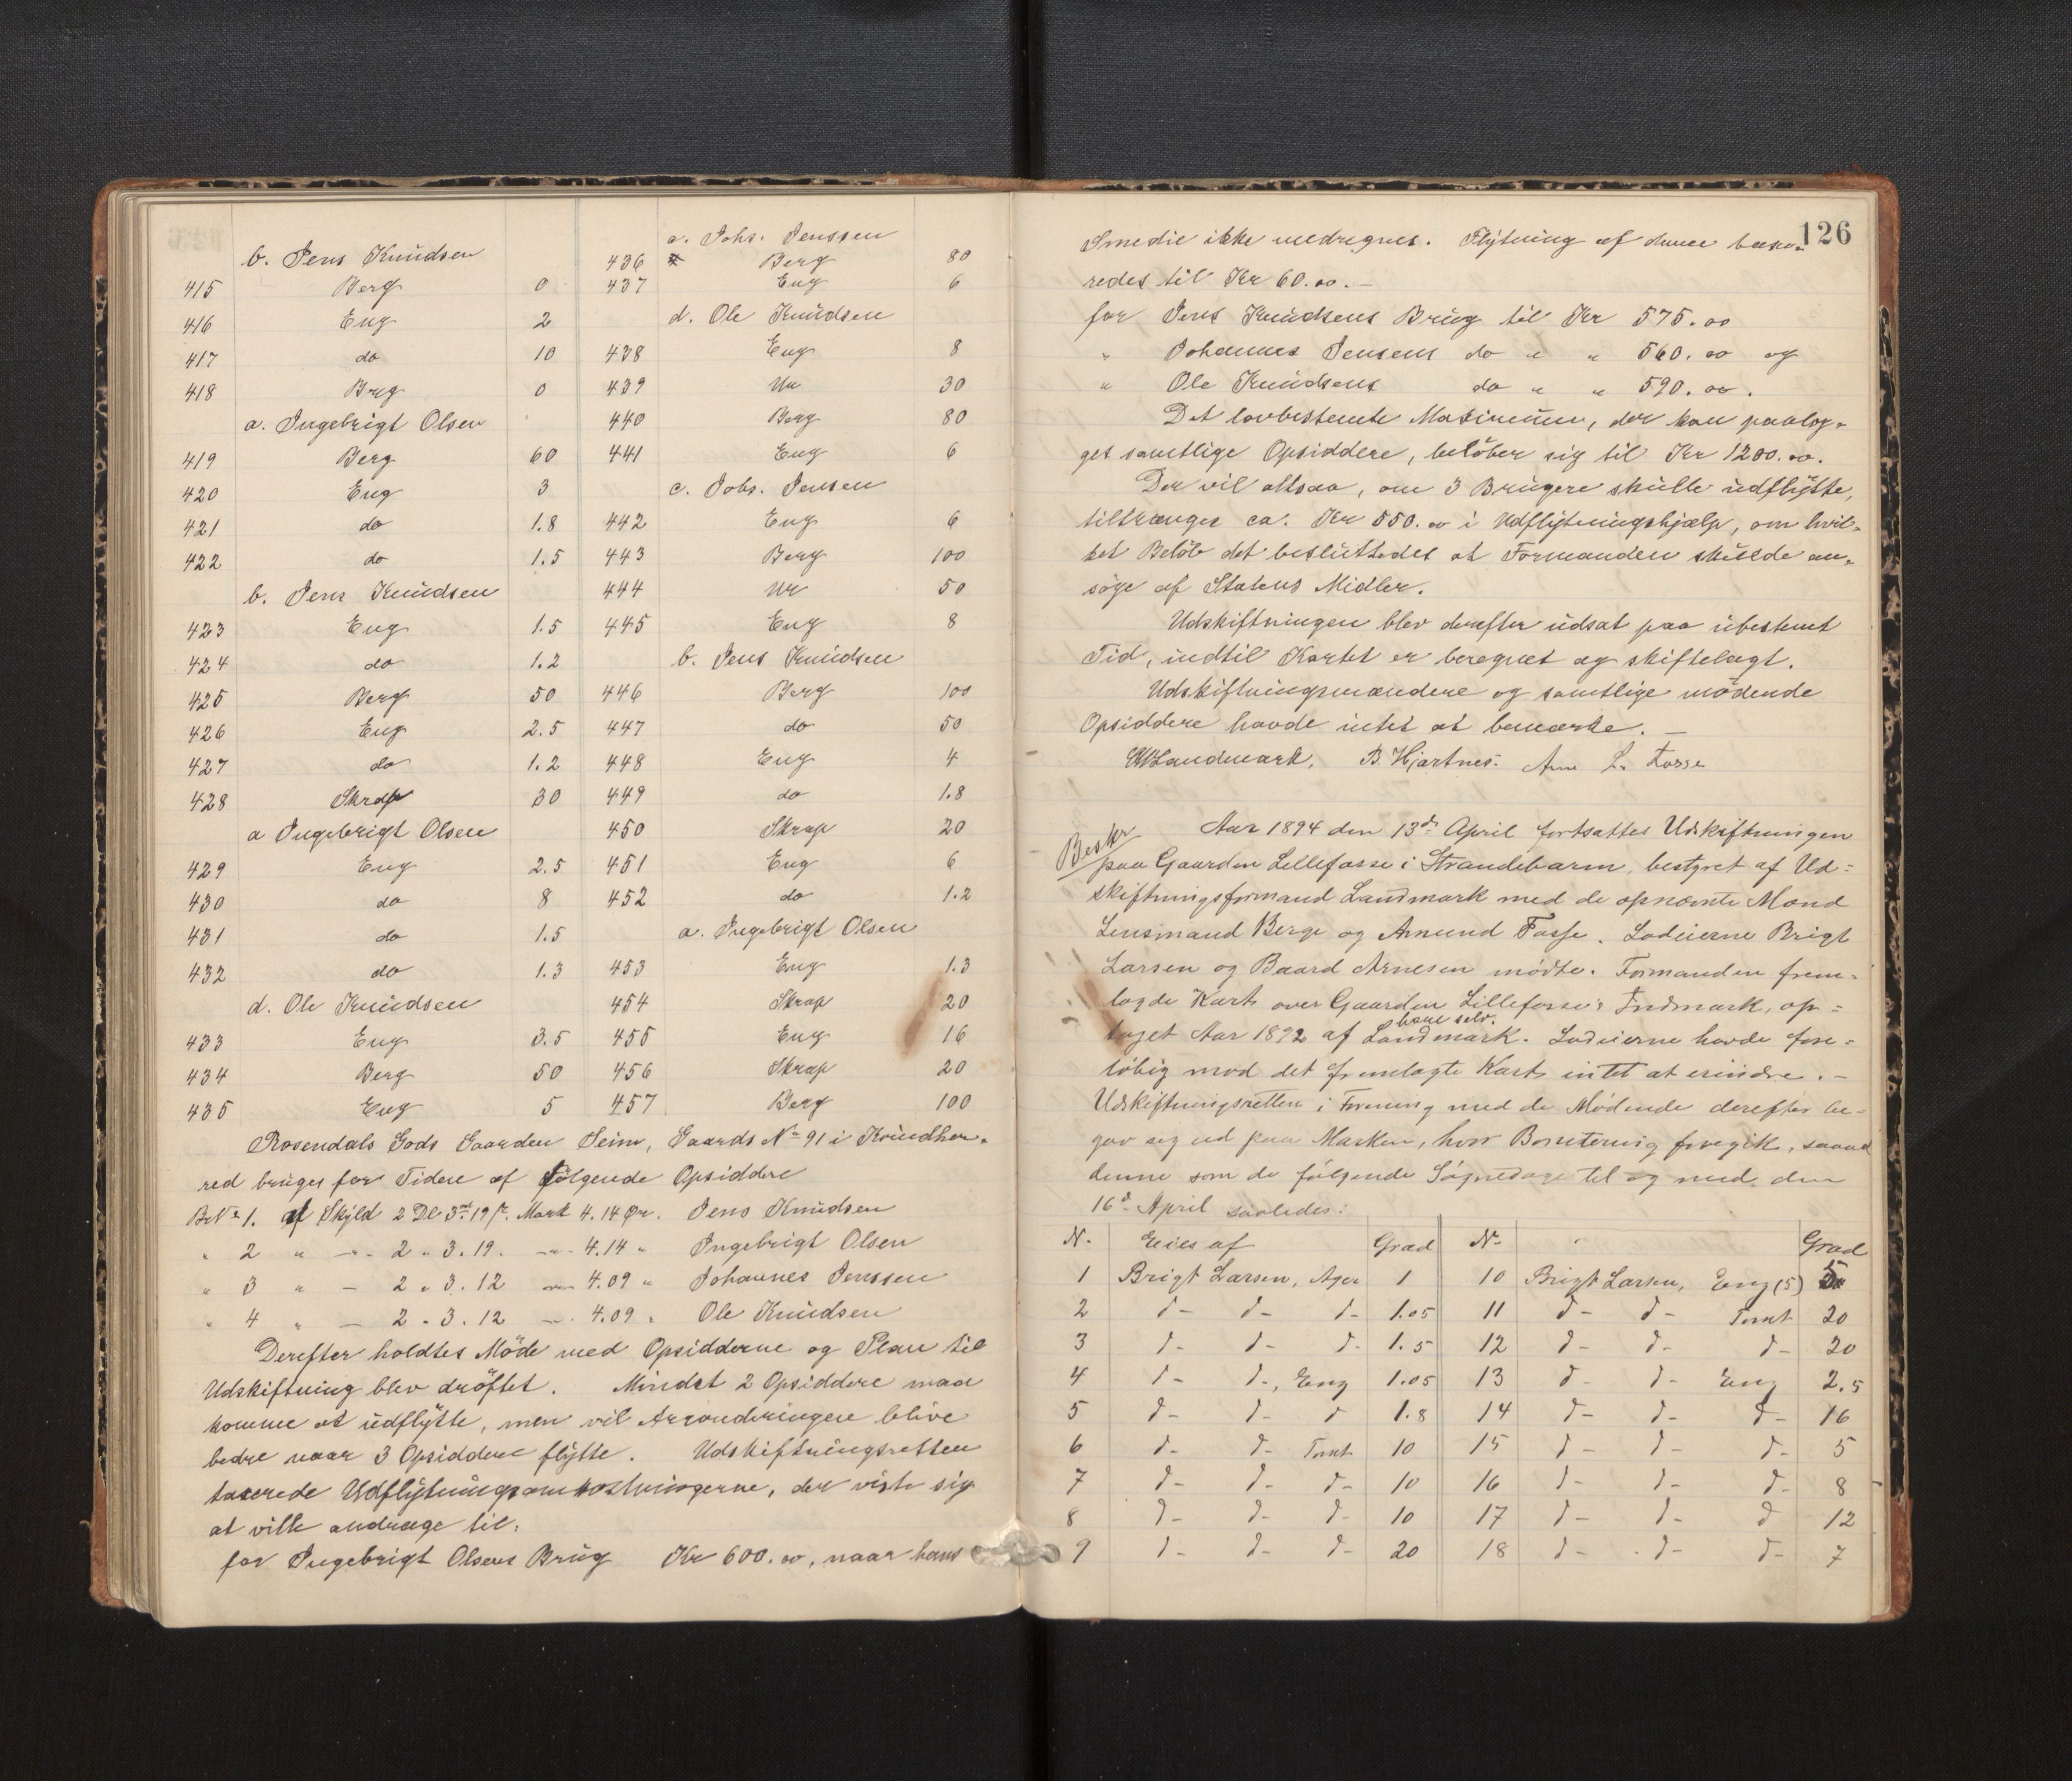 b. Jens Knudsen
415 Berg 0
416 Eng 2
417 do 10
418 Berg 0
a. Ingebrigt Olsen
419 Berg 60
420 Eng 3
421 do 1.8
422 do 1.5
b. Jens Knudsen
423 Eng 1.5
424 do 1.2
425 Berg 50
426 Eng 2.5
427 do 1.2
428 Skrap 30
a Ingebrigt Olsen
429 Eng 2.5
430 do 8
431 do 1.5
432 do 1.3
d. Ole Knudsen
433 Eng 3.5
434 Berg 50
435 Eng 5
c. Johs. Jenssen
436 Berg 80
437 Eng 6
d. Ole Knudsen
438 Eng 8
439 Ur 30
440 Berg 80
441 Eng 6
c. Johs. Jensen
442 Eng 6
443 Berg 100
444 Ur 50
445 Eng 8
b. Jens Knudsen
446 Berg 100
447 do 50
448 Eng 4
449 do 1.8
450 Skrap 20
451 Eng 6
452 do 1.2
a. Ingebrigt Olsen
453 Eng 1.3
454 Skrap 20
455 Eng 16
456 Skrap 20
457 Berg 100
Rosendals Gods Gaarden Seim, Gaards No 91 i Kvindher-
red bruges for Tiden af følgende Opsiddere
BrNo 1. af Skyld 2 Dl 3 ort 19 s. Mark 4.14 Ør. Jens Knudsen
" 2 " -"- 2 " 3.19. -"- 4.14 " Ingebrigt Olsen
" 3 " — 2 " 3.12 -"- 4.09 " Johannes Jenssen
" 4 " — 2 - 3.12 -"- 4.09 " Ole Knudsen
Derefter holdtes Møde med Opsidderne og Plan til
Udskiftning blev drøftet. Mindst 2 Opsiddere maa
komme at udflytte, men vil Arronderingen blive
bedre naar 3 Opsiddere flytte. Udskiftningsretten
taxerede Udflytningsomkostningerne, der viste sig
at ville andrage til:
for Ingebrigt Olsens Brug Kr 600.00, naar hans
126
Smedie ikke medregnes. Flytning af denne base-
redes til Kr 60.00. —
for Jens Knudsens Brug til Kr 575.00
" Johannes Jensens do " " 560.00 og
" Ole Knudsens do " " 590.00.
Det lovbestemte Maximum, der kan paalæg-
ges samtlige Opsiddere, beløber sig til Kr 1200.00.
Der vil altsaa, om 3 Brugere skulle udflytte,
tiltrænges ca. Kr 550.00 i Udflytningshjælp, om hvil-
ket Beløb det besluttedes at Formanden skulde an-
søge af Statens Midler.
Udskiftningen blev derefter udsat paa ubestemt
Tid, indtil Kartet er beregnet og skiftelagt.
Udskiftningsmændene og samtlige mødende
Opsiddere havde intet at bemærke. —
Landmark. B. Hjartnes. L. Fosse
Beskr
Aar 1894 den 13de April fortsattes Udskiftningen
paa Gaarden Lillefosse i Strandebarm, bestyret af Ud=
skiftningsformand Landmark med de opnævnte Mænd
Lensmand Berge og Amund Fosse. Lodeierne Brigt
Larsen og Baard Arnesen mødte. Formanden frem=
lagde Kart over Gaarden Lillefosse's Indmark, op=
havn selv.
taget Aar 1892 af Landmark. Lodeierne havde fore=
løbig mod det fremlagte Kart intet at erindre. —
Udskiftningsretten i Forening med de Mødende derefter be=
gav sig ud paa Marken, hvor Bonitering foregik, saavel
denne som de følgende Søgnedage til og med den
16de April saaledes:
N. Eies af Grad No Grad
1 Brigt Larsen, Ager 1
2 d- d- d- 1.05
3 d- d- d- 1.5
4 d- d-, Eng 1.05
5 d- d- d 1.8
6 d- d- Tomt 10
7 d- d- d- 10
8 d- d- d- 10
9 d- d- d- 20
10 Brigt Larsen, Eng (5) 5
11 d- d- Tomt 20
12 d- d- d- 20
13 d- d- Eng 2.5
14 d- d- d- 16
15 d- d- d- 5
16 d- d- d- 8
17 d- d- d 12
18 d- d- d- 7